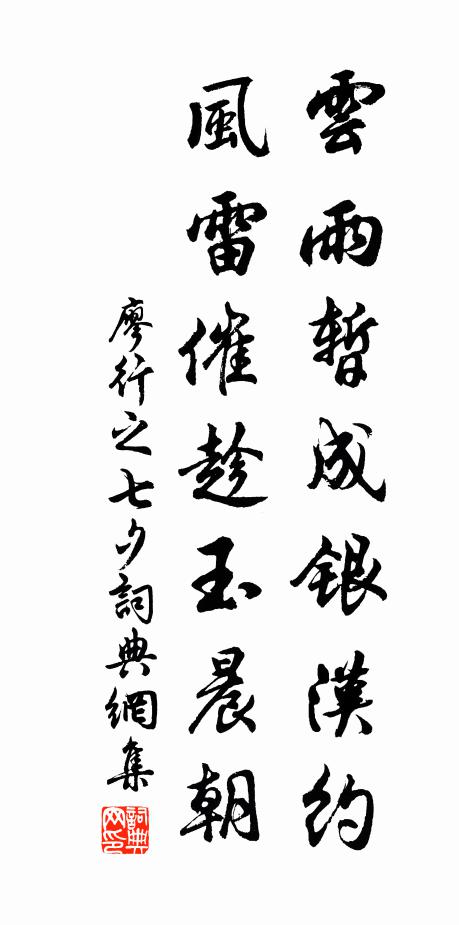 雲雨暫成銀漢約
風雷催趁玉晨朝
廖行之七夕詞典網集
詞典網印